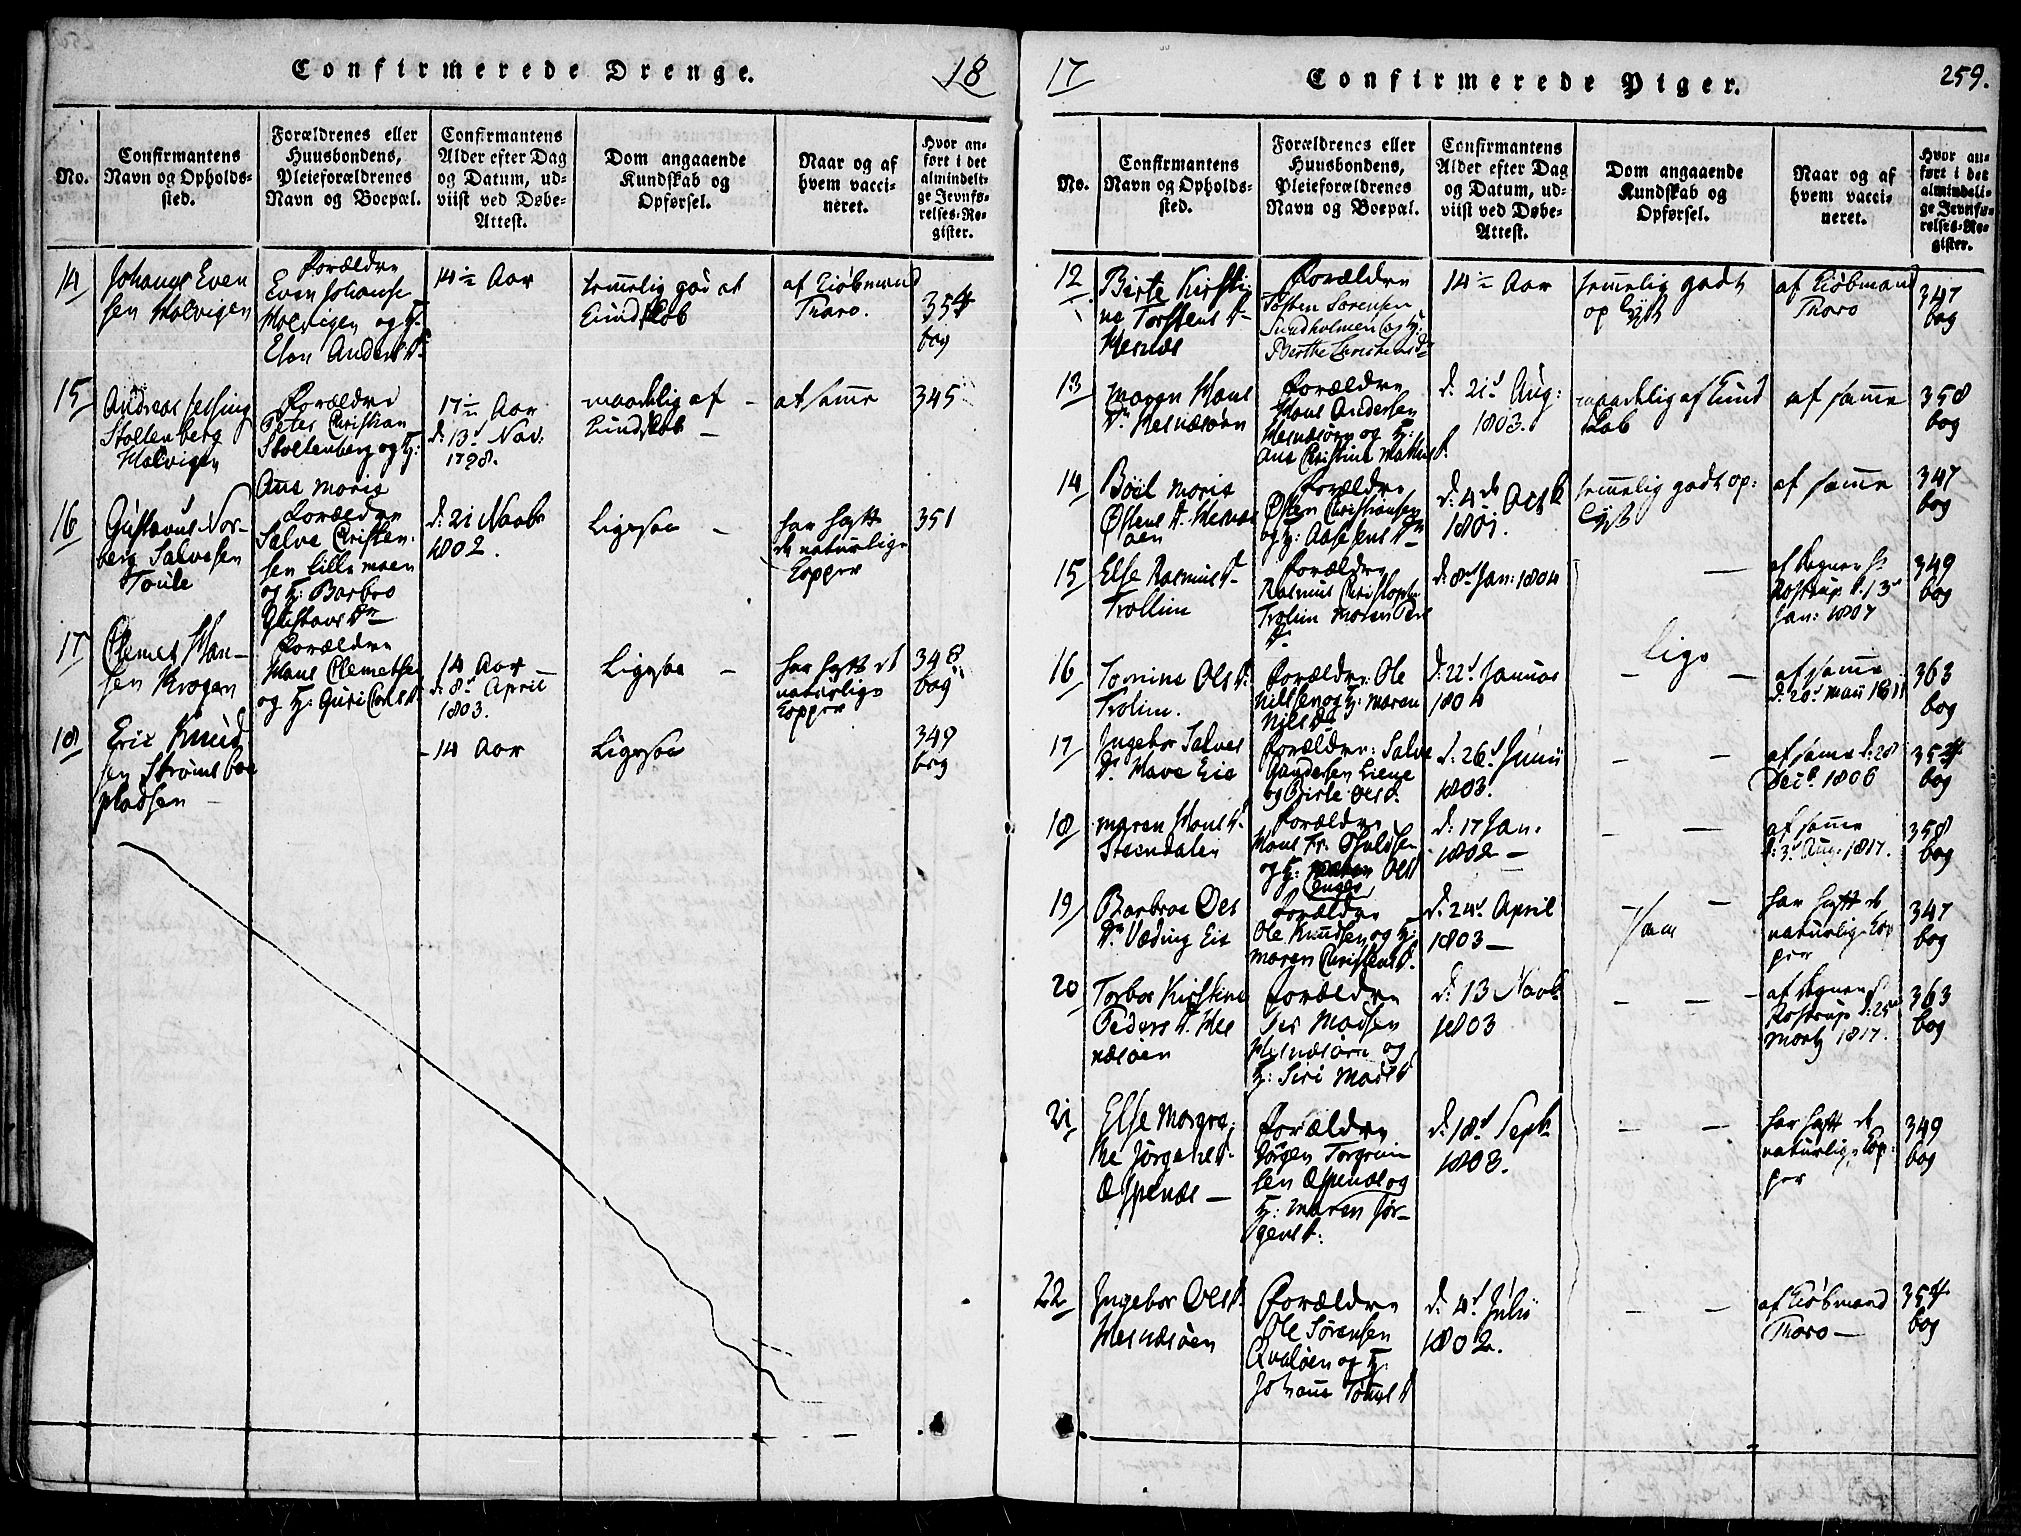 Confirmerede Drenge.
18
No.
Confirmantens
Navn og Opholds-
sted.
Forældrenes eller
Huusbondens,
Pleieforældrenes
Navn og Boepæl.
Confirmantens
Alder efter Dag
og Datum, ud-
viist ved Døbe-
Attest.
Dom angaaende
Kundskab og
Opførsel.
Naar og af
hvem vacci-
neret.
Hvor an-
ført i det
almindeli-
ge Jevnfø-
relses-Re-
gister.
14
Johanes Even
sen Holvigen
Forældre
Even Johanse
Holvigen og H.
Elen Anders D.
14½ Aar
temmelig god af
Kundskab
af Kiøbmand
Thoro.
354
bog
15
Andreas
Stoltenberg
Holvigen
Forældre
Peter Christian
Stoltenberg og H:
Ane Maria
17½ Aar
d: 13d Nov:
1798.
maadelig af
Kundskab
af samme
345
16
Gustavus Nor-
berg Salvesen
Forældre
Salve Christen-
sen Lille moen
og H: Barbro
Gustavs Dr
d: 21 Novb
1802.
Ligesaa
har haft
de naturlige
Kopper
351
17
Clemet Han-
sen Krogen
Forældre
Hans Clemetse
og H: Guri
14 Aar
d: 8d April
1803.
Ligesaa
har haft de
naturlige
Kopper
348
bog
18
Eric Knud
sen Strømsboe
pladsen
14 Aar
Ligesaa
349
bog
17
Confirmerede Piger.
259.
No.
Confirmantens
Navn og Opholds-
sted.
Forældrenes eller
Huusbondens,
Pleieforældrenes
Navn og Boepæl.
Confirmantens
Alder efter Dag
og Datum, ud-
viist ved Døbe-
Attest.
Dom angaaende
Kundskab og
Opførsel.
Naar og af
hvem vacci-
neret.
Hvor an-
ført i det
almindeli-
ge Jevnfø-
relses-Re-
gister.
12
Birte Kirsti-
ne Torstens D
Hesnæs
Forældre
Tosten Sørensen
Sundholmen og H:
Berthe
14½ Aar
temmelig godt
oplyst
af Kiøbmand
Thoro
347
bog
13
Maren Hans
Dr Hesnæsøen
Forældre
Hans Andersen
Hesnæsøen og H:
Ane Christine
d. 21d Aug:
1803.
maadelig af Kund
skab
af samme
358
bog
14
Boel Maria
Østens D. Hesnæs
øen
Forældre
Østen Christiansen
og H:
d: 4de Octb
1801.
temmelig godt op:
lyst
af samme
347
bog
15
Else Rasmus D
Trollim
Forældre
Rasmus Christophe
Trolim Maren
d: 8d Jan: 1804
af Degnen Hr
Rostrup d. 13
Jan: 1807
349
bog
16
Tomine Ols D.
Trolim.
Forældre: Ole
Nilsen og H: Maren
Niels D.
d: 22d Januar
1804
lige
af samme
d. 20d Maii 1811
363
bog
17
Ingebor Salves
Dr Have Eie
Forældre: Salve
Gundersen Liene
og Birte Ols D.
d. 26d Junii
1803.
af samme d. 28
Decb. 1806
354
bog
18
Maren Hans D.
Steendalen
Forældre
Hans
og H: Ols D
d: 17 Jan.
1802
af samme
d. 3d Aug: 1817.
358
bog
19
Barbroe Ols
Dr Væding Eie
Forældre
Ole Knudsen og H:
Maren Christens D.
d: 24d April
1803
saa
har haft de
naturlige Kop
per
347
bog
20
Torbor Kirstine
Peders D. Hes
næsøen
Forældre
Per Madsen
Hesnæsøen og
H: Siri Mads D
d: 13 Novb
1803
af Degnen
Rostrup d: 25
Martz 1817.
363
bog
21
Else Margre-
the Jørgens D.
Æspenæs
Forældre
Jørgen Torgrim
sen Æspenæs og
H: Maren Jør-
gens D.
d. 18d Sept.
1803.
har haft de
naturlige Kop-
per
349
bog
22
Ingebor Ols D.
Hesnæsøen
Forældre
Ole Sørensen
Qvaløen og H:
Johanne
d. 4d Julii
1802.
af Kiøbmand
Thoro
354
bog